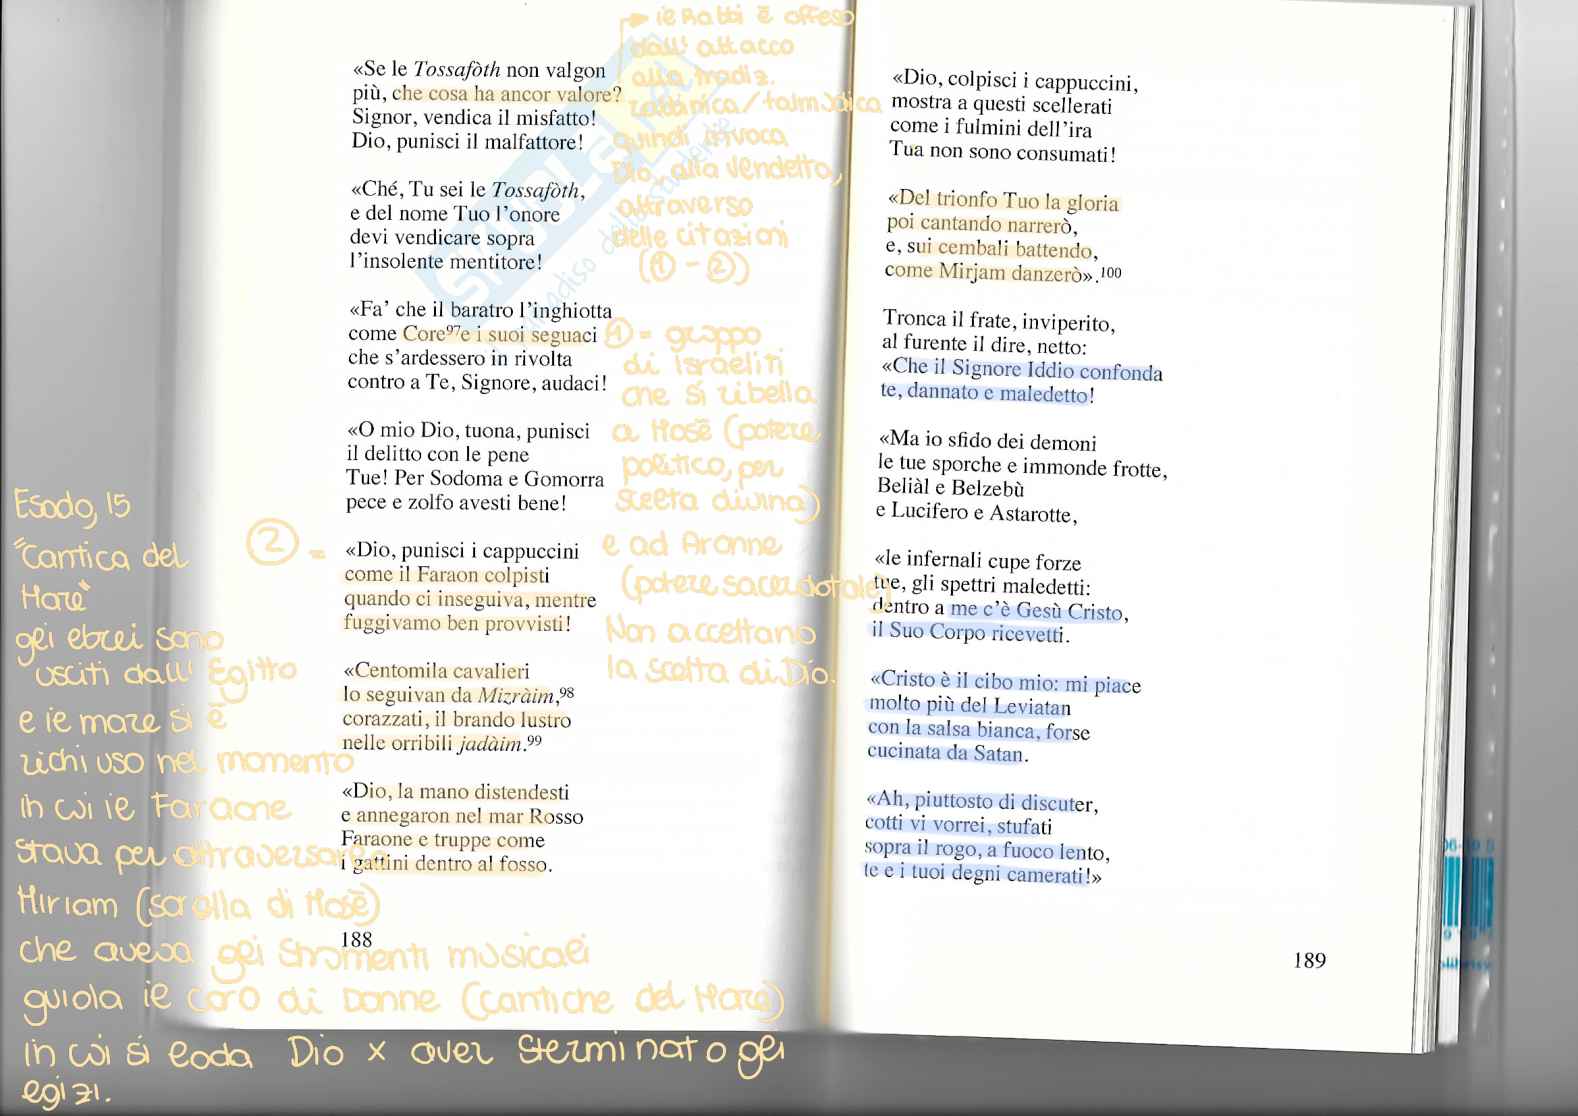 «Se le Tossafòth non valgon
più, che cosa ha ancor valore?
Signor, vendica il misfatto!
Dio, punisci il malfattore!
«Ché, Tu sei le Tossafòth,
e del nome Tuo l'onore
devi vendicare sopra
l'insolente mentitore!
«Fa' che il baratro l'inghiotta
come Core97e i suoi seguaci
che s'ardessero in rivolta
contro a Te, Signore, audaci!
«O mio Dio, tuona, punisci
il delitto con le pene
Tue! Per Sodoma e Gomorra
pece e zolfo avesti bene!
«Dio, punisci i cappuccini
come il Faraon colpisti
quando ci inseguiva, mentre
fuggivamo ben provvisti!
«Centomila cavalieri
lo seguivan da Mizràim,98
corazzati, il brando lustro
nelle orribili jadàim.99
«Dio, la mano distendesti
e annegaron nel mar Rosso
Faraone e truppe come
i gattini dentro al fosso.
188
ie Rabbi è offeso
dall' attacco
alla tradiz.
rabbinica/talmudica
quindi invoca
Dio, alla vendetta,
attraverso
delle citazioni
(1 - 2)
1 = gruppo
di Israeliti
che si ribella
a Mosè (potere
politico, per
scelta divina)
e ad Aronne
(potere sacerdotale)
Non accettano
la scelta di Dio.
2 =
Esodo, 15
"Cantica del
Mare"
gei ebrei sono
usciti dall' Egitto
e ie mare si è
richiuso nel momento
in cui ie Faraone
stava per attraversare
Miriam (sorella di Mosè)
che aveva gei strumenti musicaei
guiola ie coro di Donne (cantiche del Mare)
in cui si eoda Dio x aver sterminato gei
egizi.
«Dio, colpisci i cappuccini,
mostra a questi scellerati
come i fulmini dell'ira
Tua non sono consumati!
«Del trionfo Tuo la gloria
poi cantando narrerò,
e, sui cembali battendo,
come Mirjam danzerò».100
Tronca il frate, inviperito,
al furente il dire, netto:
«Che il Signore Iddio confonda
te, dannato e maledetto!
«Ma io sfido dei demoni
le tue sporche e immonde frotte,
Beliàl e Belzebù
e Lucifero e Astarotte,
«le infernali cupe forze
tue, gli spettri maledetti:
dentro a me c'è Gesù Cristo,
il Suo Corpo ricevetti.
«Cristo è il cibo mio: mi piace
molto più del Leviatan
con la salsa bianca, forse
cucinata da Satan.
«Ah, piuttosto di discuter,
cotti vi vorrei, stufati
sopra il rogo, a fuoco lento,
te e i tuoi degni camerati!»
189